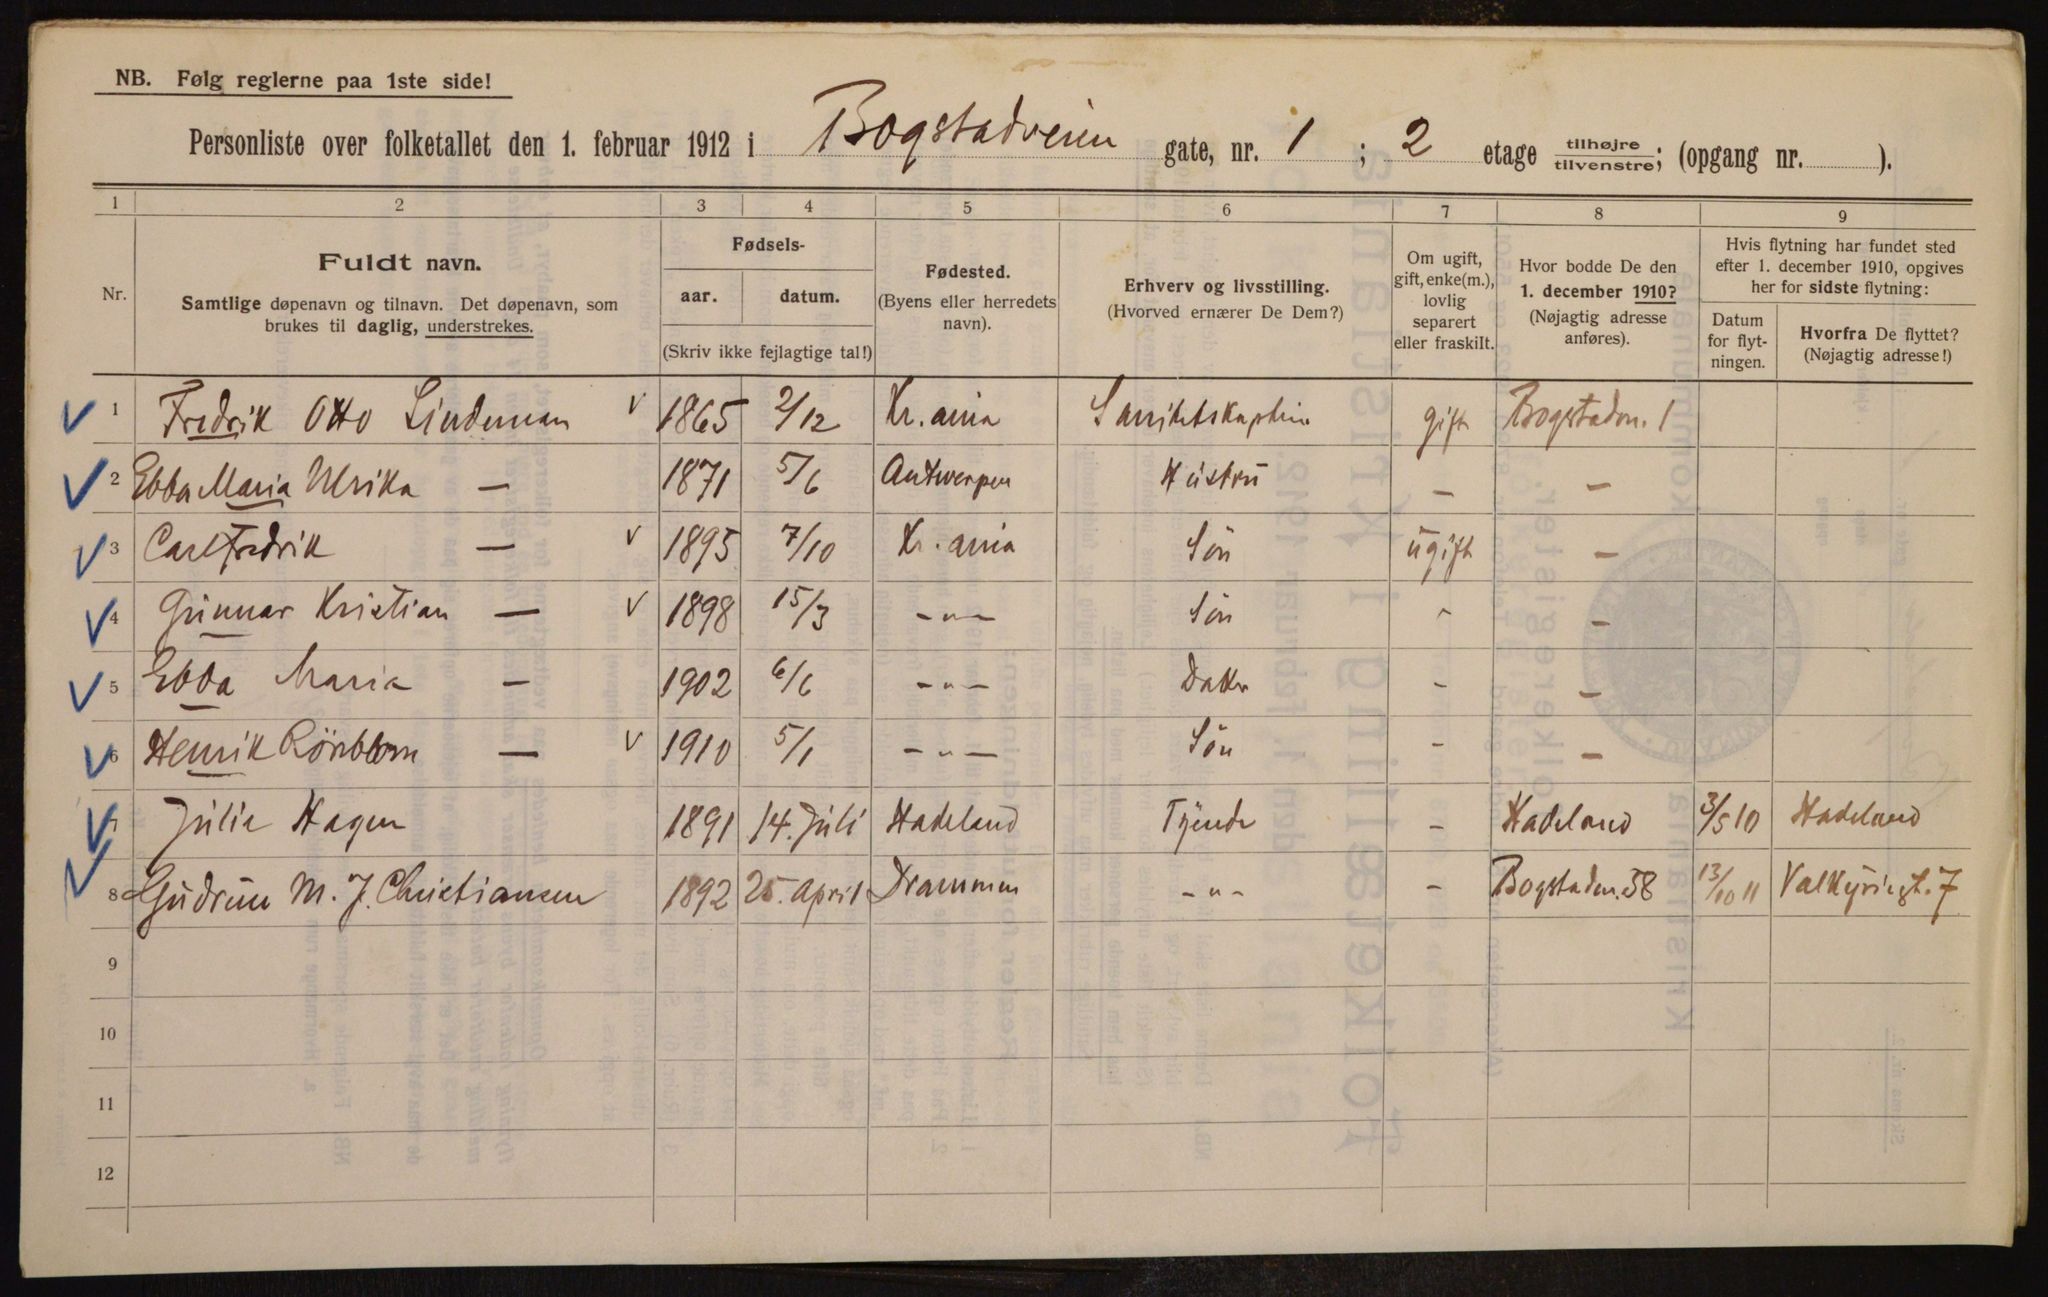 NB. Følg reglerne paa 1ste side!
Personliste over folketallet den 1. februar 1912 i Bogstadveien gate, nr. 1 ; 2 etage tilhøjre tilvenstre; (opgang nr. ).
1 2 3 4 5 6 7 8 9
Nr.
Fuldt navn.
Samtlige døpenavn og tilnavn. Det døpenavn, som
brukes til daglig, understrekes.
Fødsels-
aar. datum.
(Skriv ikke fejlagtige tal!)
Fødested.
(Byens eller herredets
navn).
Erhverv og livsstilling.
(Hvorved ernærer De Dem?)
Om ugift,
gift, enke(m.),
lovlig
separert
eller fraskilt.
Hvor bodde De den
1. december 1910?
(Nøjagtig adresse
anføres).
Hvis flytning har fundet sted
efter 1. december 1910, opgives
her for sidste flytning:
Datum
for flyt-
ningen.
Hvorfra De flyttet?
(Nøjagtig adresse!)
1 Fredrik Otto Lindeman 1865 2/12 Kr.ania Sanitetskaptein gift Bogstadvn. 1
2 Ebba Maria Ulrika — 1871 5/6 Antwerpen Hustru — —
3 Carl Fredrik — 1895 7/10 Kr.ania Sön ugift —
4 Gunnar Kristian — 1898 15/3 —"— Sön - —
5 Ebba Maria — 1902 6/6 —"— Datter - —
6 Henrik — 1910 5/1 —"— Sön - —
7 Julie Hagen 1891 14. Juli Hadeland Tjende - Hadeland 3/5 10 Hadeland
8 Gudrun M. J. Christiansen 1892 25. April Drammen -"- - Bogstadvn. 58 13/10 11 Valkyriegt. 7
9
10
11
12